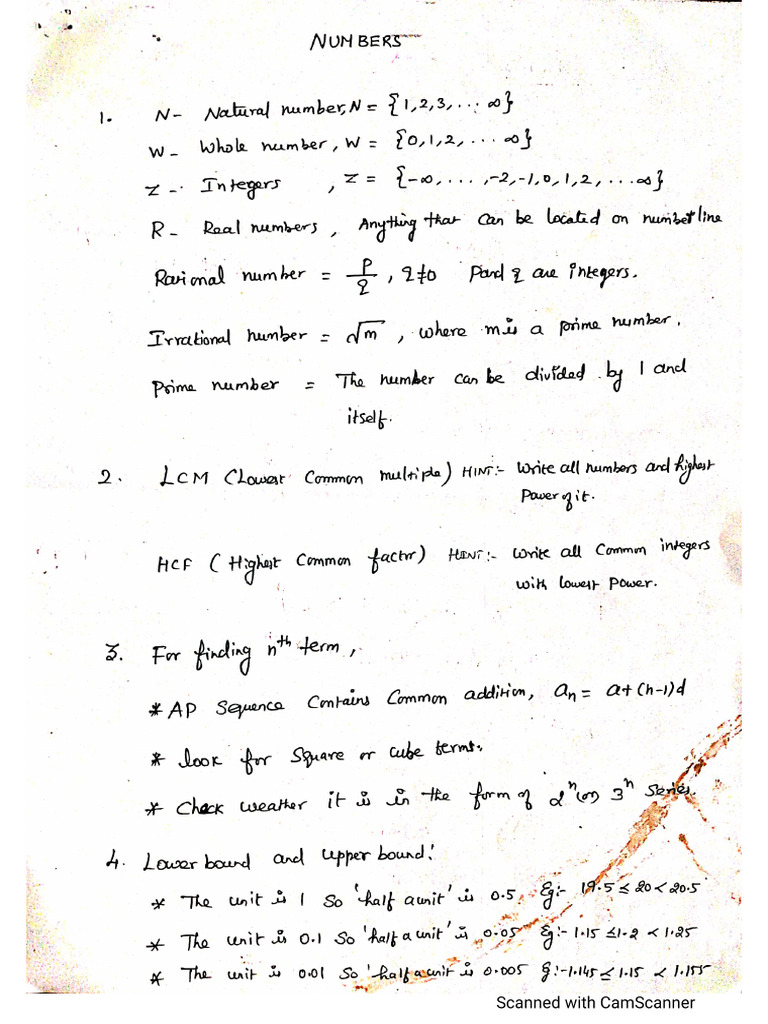 NUMBERS
1. N- Natural number, N = {1,2,3,... ∞}
W- Whole number, W = {0,1,2,... ∞}
Z- Integers, Z = {-∞,...,-2,-1,0,1,2,...∞}
R- Real numbers, Anything that can be located on number line
Rational number = p/q, q≠0 P and q are integers.
Irrational number = √m, where m is a prime number.
Prime number = The number can be divided by 1 and
itself.
2. LCM (Lowest Common multiple) HINT:- Write all numbers and highest
Power of it.
HCF (Highest Common factor) HINT:- Write all Common integers
with lowest Power.
3. For finding nth term,
* AP Sequence Contains Common addition, an = a+(n-1)d
* look for Square or cube terms.
* Check weather it is in the form of 2^n (or) 3^n Series.
4. Lower bound and upper bound:
* The unit is 1 So 'half a unit' is 0.5. Eg:- 19.5 ≤ 20 < 20.5
* The unit is 0.1 So 'half a unit' is 0.05 Eg:- 1.15 ≤ 1.2 < 1.25
* The unit is 0.01 So 'half a unit is 0.005 Eg:- 1.145 ≤ 1.15 < 1.155
Scanned with CamScanner